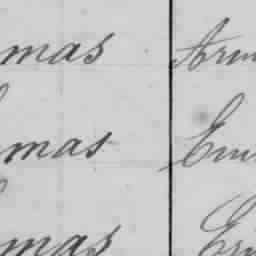 mas Arm
mas Em
mas Eri